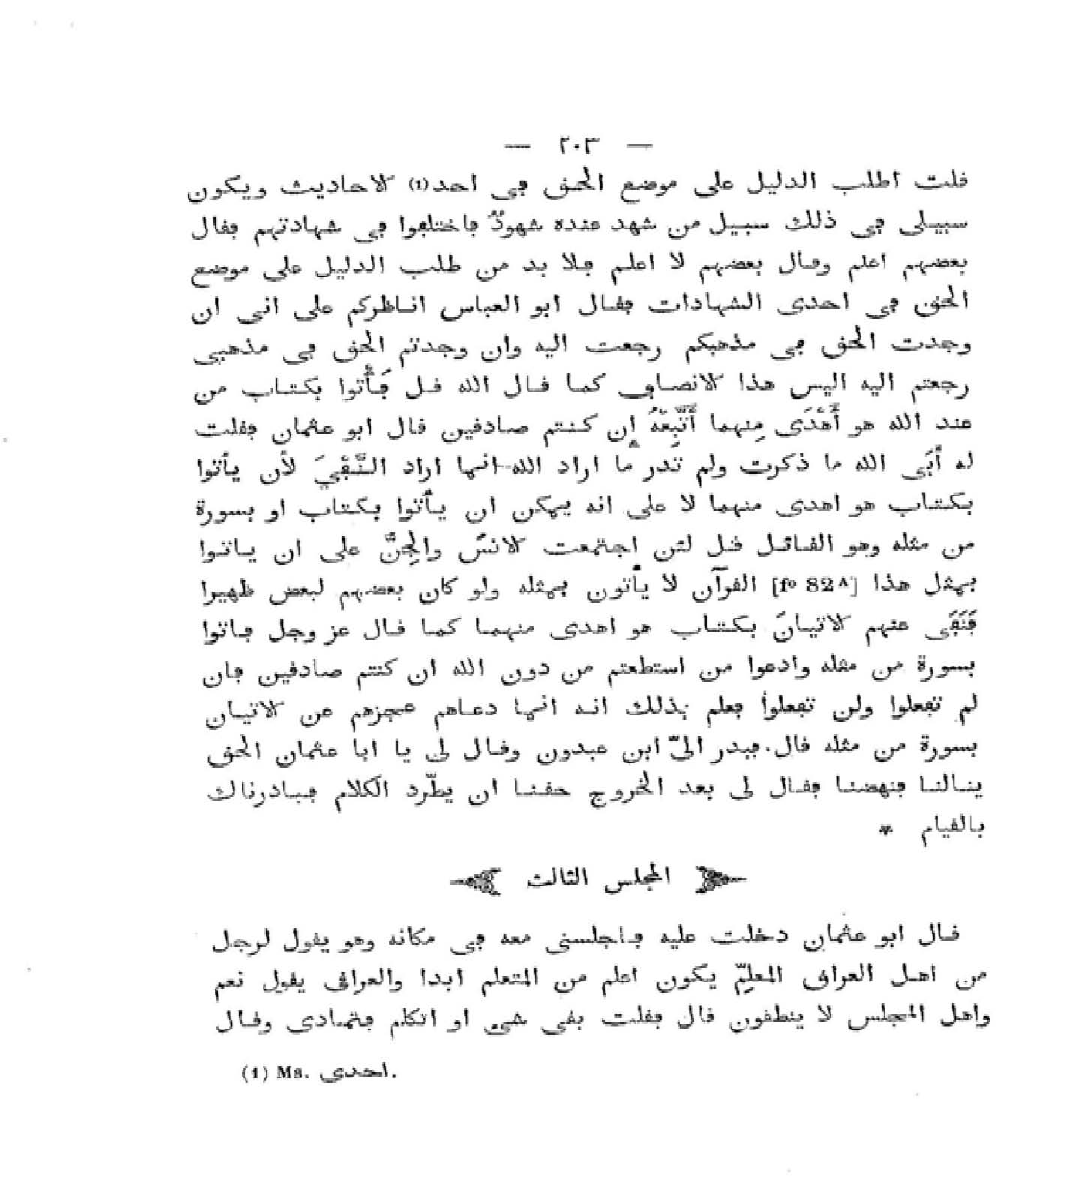 — ٢٠٣ —
قلت اطلب الدليل على موضع الحق فى احد(1) الاحاديث ويكون
سبيلى فى ذلك سبيل من شهد عنده شهودٌ فاختلفوا فى شهادتهم فقال
بعضهم اعلم وقال بعضهم لا اعلم فلا بد من طلب الدليل على موضع
الحق فى احدى الشهادات فقال ابو العباس اناظركم على انى ان
وجدت الحق فى مذهبكم رجعت اليه وان وجدتم الحق فى مذهبى
رجعتم اليه اليس هذا الانصاف كما قال الله قل فَأْتُوا بكتاب من
عند الله هو أَهْدَى مِنهما أَتَّبِعْهُ إِن كنتم صادقين قال ابو عثمان فقلت
له أبَى الله ما ذكرت ولم تدر ما اراد الله انما اراد النَّفْيَ لأن يأتوا
بكتاب هو اهدى منهما لا على انه يمكن ان يأتوا بكتاب او بسورة
من مثله وهو القائل قل لئن اجتمعت الانسُ والجِنُّ على ان ياتوا
بمثل هذا [fº 82ᴬ] القرآن لا يأتون بمثله ولو كان بعضهم لبعض ظهيرا
فَنَفَى عنهم الاتيانَ بكتاب هو اهدى منهما كما قال عز وجل فاتوا
بسورة من مثله وادعوا من استطعتم من دون الله ان كنتم صادقين فان
لم تفعلوا ولن تفعلوا فعلم بذلك انه انما دعاهم عجزهم عن الاتيان
بسورة من مثله قال. فبدر الىّ ابن عبدون وقال لى يا ابا عثمان الحق
ينالنا فنهضنا فقال لى بعد الخروج خفنا ان يطّرد الكلام فبادرناك
بالقيام *
المجلس الثالث
قال ابو عثمان دخلت عليه فاجلسنى معه فى مكانه وهو يقول لرجل
من اهل العراق المعلِّم يكون اعلم من المتعلم ابدا والعراقى يقول نعم
واهل المجلس لا ينطقون قال فقلت بقى شىء او اتكلم فتمادى وقال
(1) Ms. احدى.